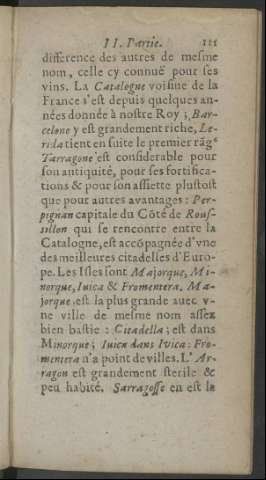 II. Partie. 121
difference des autres de mesme
nom, celle cy connuë pour ses
vins. La Catalogne voisine de la
France s'est depuis quelques an-
nées donnée à nostre Roy; Bar-
celone y est grandement riche, Le-
rida tient en suite le premier rāg
Tarragone est considerable pour
son antiquité, pour ses fortifica-
tions & pour son assiette plustost
que pour autres avantages: Per-
pignan capitale du Côté de Rous-
sillon qui se rencontre entre la
Catalogne, est accōpagnée d'vne
des meilleures citadelles d'Euro-
pe. Les Isles sont Majorque, Mi-
norque, Iuica & Fromentera. Ma-
jorque est la plus grande auec v-
ne ville de mesme nom assez
bien bastie: Citadella; est dans
Minorque; Iuica dans Ivica: Fro-
mentera n'a point de villes. L'Ar-
ragon est grandement sterile &
peu habité. Sarragosse en est la